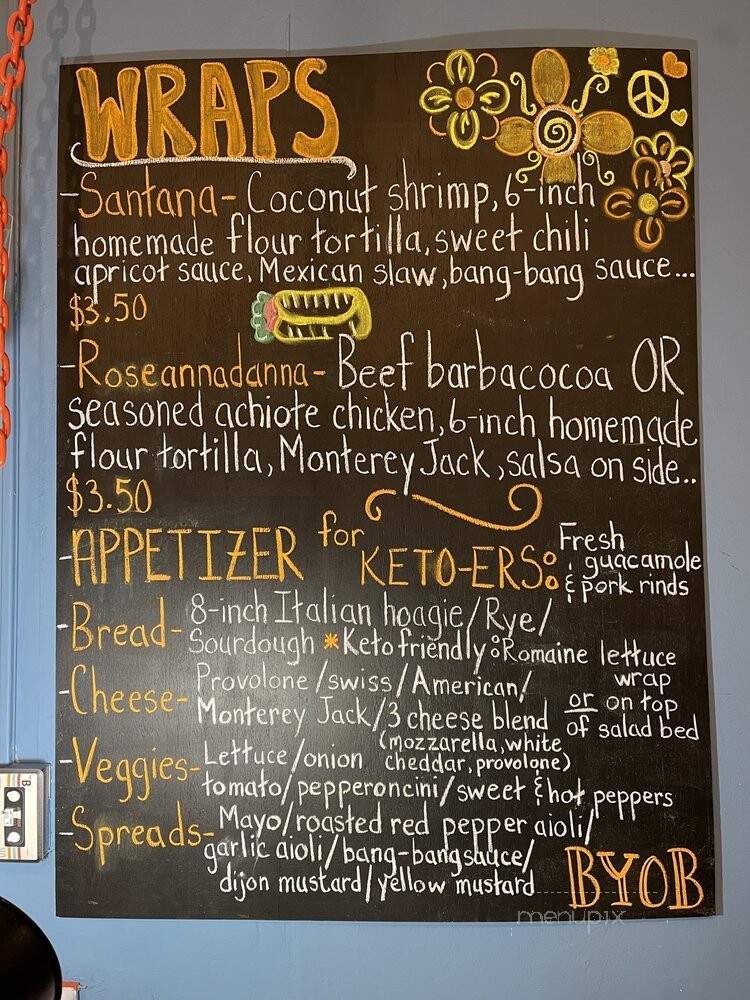 WRAPS
-Santana- Coconut shrimp, 6-inch
homemade flour tortilla, sweet chili
apricot sauce, Mexican slaw, bang-bang sauce...
$3.50
-Roseannadanna- Beef barbacocoa OR
seasoned achiote chicken, 6-inch homemade
flour tortilla, Monterey Jack, salsa on side..
$3.50
-APPETIZER for KETO-ERS: Fresh
guacamole
& pork rinds
-Bread- 8-inch Italian hoagie/Rye/
Sourdough *Keto friendly: Romaine lettuce
wrap
or on top
of salad bed
-Cheese- Provolone/swiss/American/
Monterey Jack/3 cheese blend
(mozzarella, white
cheddar, provolone)
-Veggies- Lettuce/onion
tomato/pepperoncini/sweet & hot peppers
-Spreads- Mayo/roasted red pepper aioli/
garlic aioli/bang-bang sauce/
dijon mustard/yellow mustard
BYOB
menupix
B